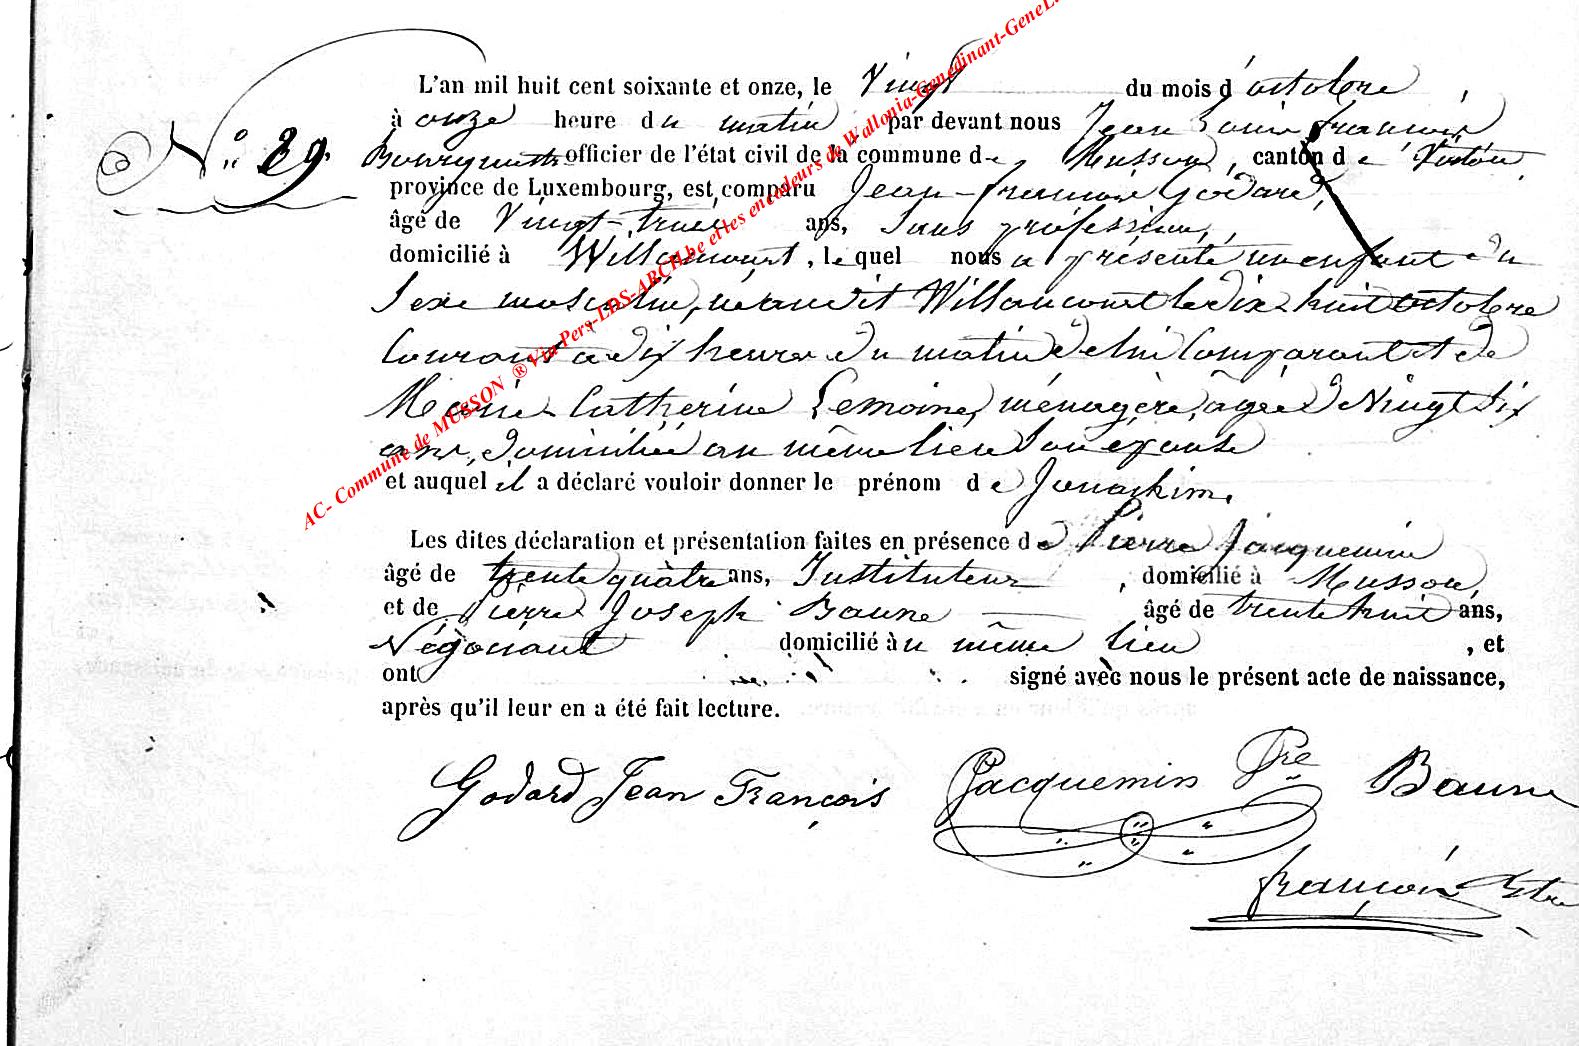 L'an mil huit cent soixante et onze, le Vingt du mois d'octobre,
N° 89. à onze heure du matin par devant nous Jean Louis François
officier de l'état civil de la commune de Musson, canton de Virton,
province de Luxembourg, est comparu Jean-François Godard,
âgé de Vingt-trois ans, sans profession,
domicilié à Willancourt, lequel nous a présenté un enfant du
sexe masculin, né audit Willancourt le dix-huit octobre
courant à dix heures du matin de lui comparant et de
Marie Catherine Lemoine, ménagère, âgée de Vingt six
ans, domiciliée au même lieu son épouse
et auquel il a déclaré vouloir donner le prénom de Jouachim.
Les dites déclaration et présentation faites en présence de Pierre Jacquemin
âgé de trente quatre ans, Instituteur, domicilié à Musson,
et de Pierre Joseph Baune âgé de trente huit ans,
Négociant domicilié au même lieu, et
ont signé avec nous le présent acte de naissance,
après qu'il leur en a été fait lecture.
Godard Jean François Jacquemin Pre Baune
François
AC- Commune de MUSSON ® Via Pers-LDS-ARCH.be et les encodeurs de Wallonia-Genedinant-GeneL